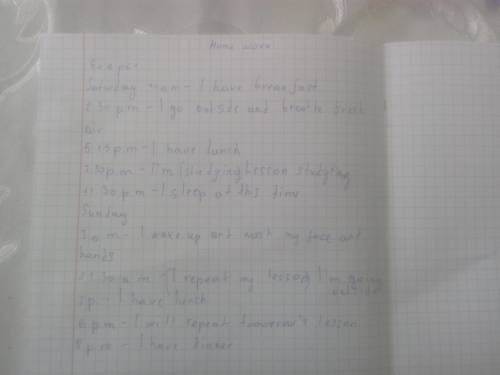 Home work
Saturday 11 am - I have breakfast
2.30 p.m - I go outside and breathe fresh
air
5:15 p.m - I have lunch
7.30 p.m - I'm studying lesson studying
11.30 p.m - I sleep at this time
Sunday
a.m - I wake up and wash my face and
hands
11.30 a.m - I repeat my lesson, I'm going
outside
p. - I have lunch
6 p.m - I will repeat tomorrow's lesson
8 p.m - I have dinner